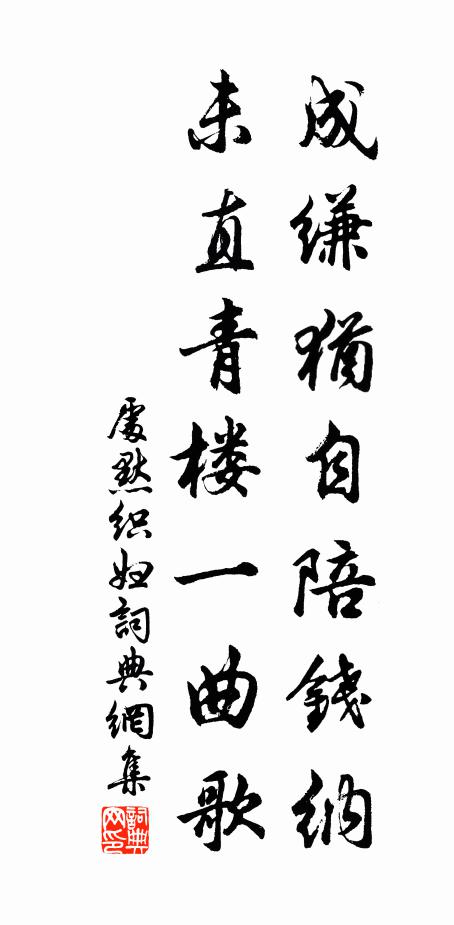 成縑猶自陪錢納
未直青樓一曲歌
處默織婦詞典網集
詞典網印